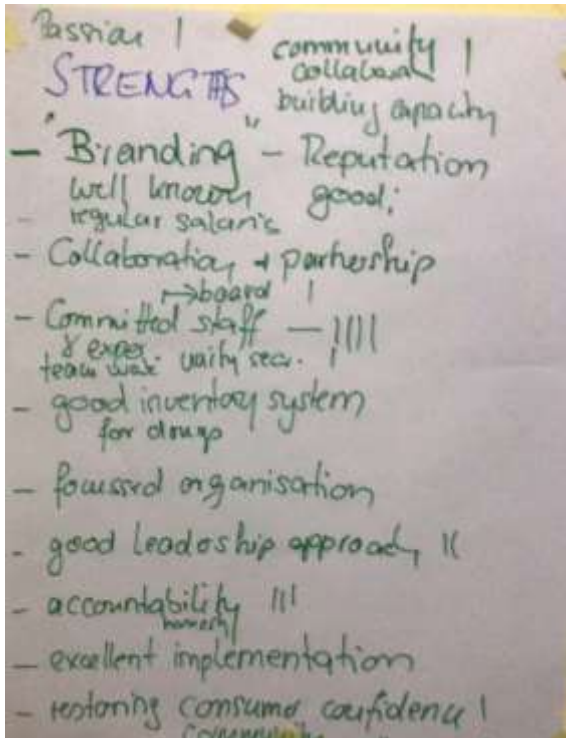 Passion |
community |
collaborat
STRENGTHS
building capacity
- "Branding" - Reputation
well known good;
- regular salaris
- Collaboration + partnership
→ board |
- Committed staff - ||||
& exper |
team
- good inventory system
for drugs
- focussed organisation
- good leadership approach ||
- accountability |||
honesty
- excellent implementation
- restoring consumer confidence |
community